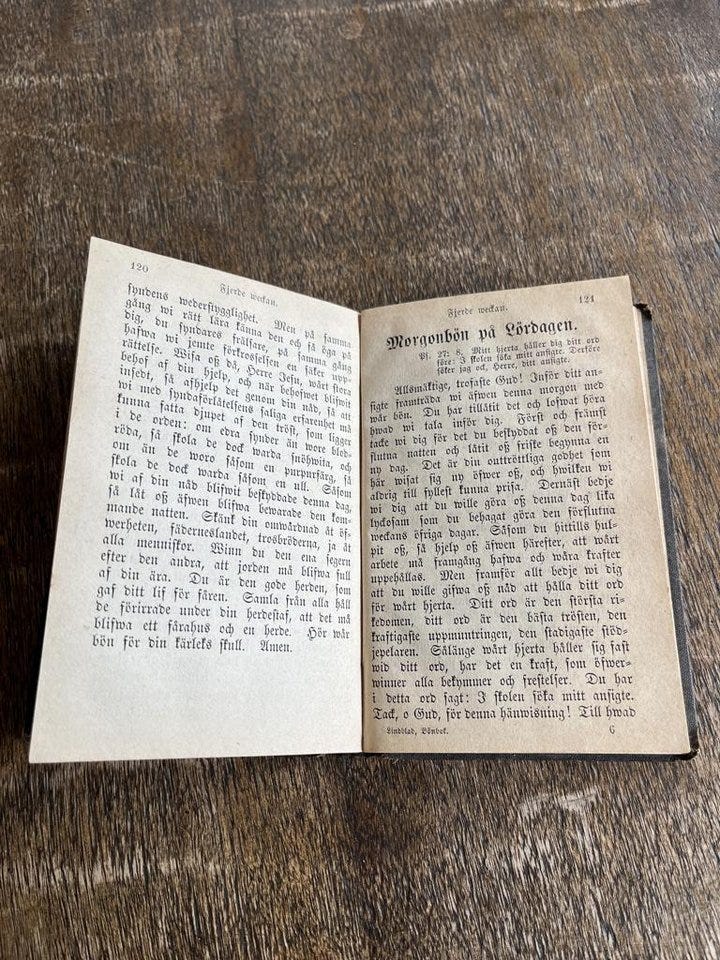 120
Fjerde weckan.
syndens wederstygglighet. Men på samma
gång wi rätt lära känna den och så öga på
dig, du syndares frälsare, på samma gång
hafwa wi jemte förkrosselsen en säker uppe-
rättelse. Wisa oß då, Herre Jesu, wårt stora
behof af din hjelp, och när behofwet blifwit
insedt, så afhjelp det genom din nåd, så att
wi med syndaförlåtelsens saliga erfarenhet må
kunna fatta djupet af den tröst, som ligger
i de orden: om edra synder än wore blod-
röda, så skola de dock warda snöhwita, och
om än de woro såsom en purpurfärg, så
skola de dock warda såsom en ull. Såsom
wi af din nåd blifwit beskyddade denna dag,
så låt oß äfwen blifwa bewarade den kom-
mande natten. Skänk din omwårdnad åt öf-
werheten, fäderneslandet, trosbröderna, ja åt
alla menniskor. Winn du den ena segern
efter den andra, att jorden må blifwa full
af din ära. Du är den gode herden, som
gaf ditt lif för fåren. Samla från alla håll
de förirrade under din herdestaf, att det må
blifwa ett fårahus och en herde. Hör wår
bön för din kärleks skull. Amen.
Fjerde weckan.
121
Morgonbön på Lördagen.
Ps. 27: 8. Mitt hjerta håller dig ditt ord
före: I skolen söka mitt ansigte. Derföre
söker jag ock, Herre, ditt ansigte.
Allsmäktige, trofaste Gud! Inför ditt an-
sigte framträda wi äfwen denna morgon med
wår bön. Du har tillåtit det och lofwat höra
hwad wi tala inför dig. Först och främst
tacke wi dig för det du beskyddat oß den för-
slutna natten och låtit oß friske begynna en
ny dag. Det är din outtröttliga godhet som
här wisat sig ny öfwer oß, och hwilken wi
aldrig till fyllest kunna prisa. Dernäst bedje
wi dig att du wille göra oß denna dag lika
lyckosam som du behagat göra den förslutna
weckans öfriga dagar. Såsom du hittills hul-
pit oß, så hjelp oß äfwen härefter, att wårt
arbete må framgång hafwa och wåra krafter
uppehållas. Men framför allt bedje wi dig
att du wille gifwa oß nåd att hålla ditt ord
för wårt hjerta. Ditt ord är den största ri-
kedomen, ditt ord är den bästa trösten, den
kraftigaste uppmuntringen, den stadigaste stöd-
jepelaren. Sålänge wårt hjerta håller sig fast
wid ditt ord, har det en kraft, som öfwer-
winner alla bekymmer och frestelser. Du har
i detta ord sagt: I skolen söka mitt ansigte.
Tack, o Gud, för denna hänwisning! Till hwad
Lindblad, Bönbok.
6